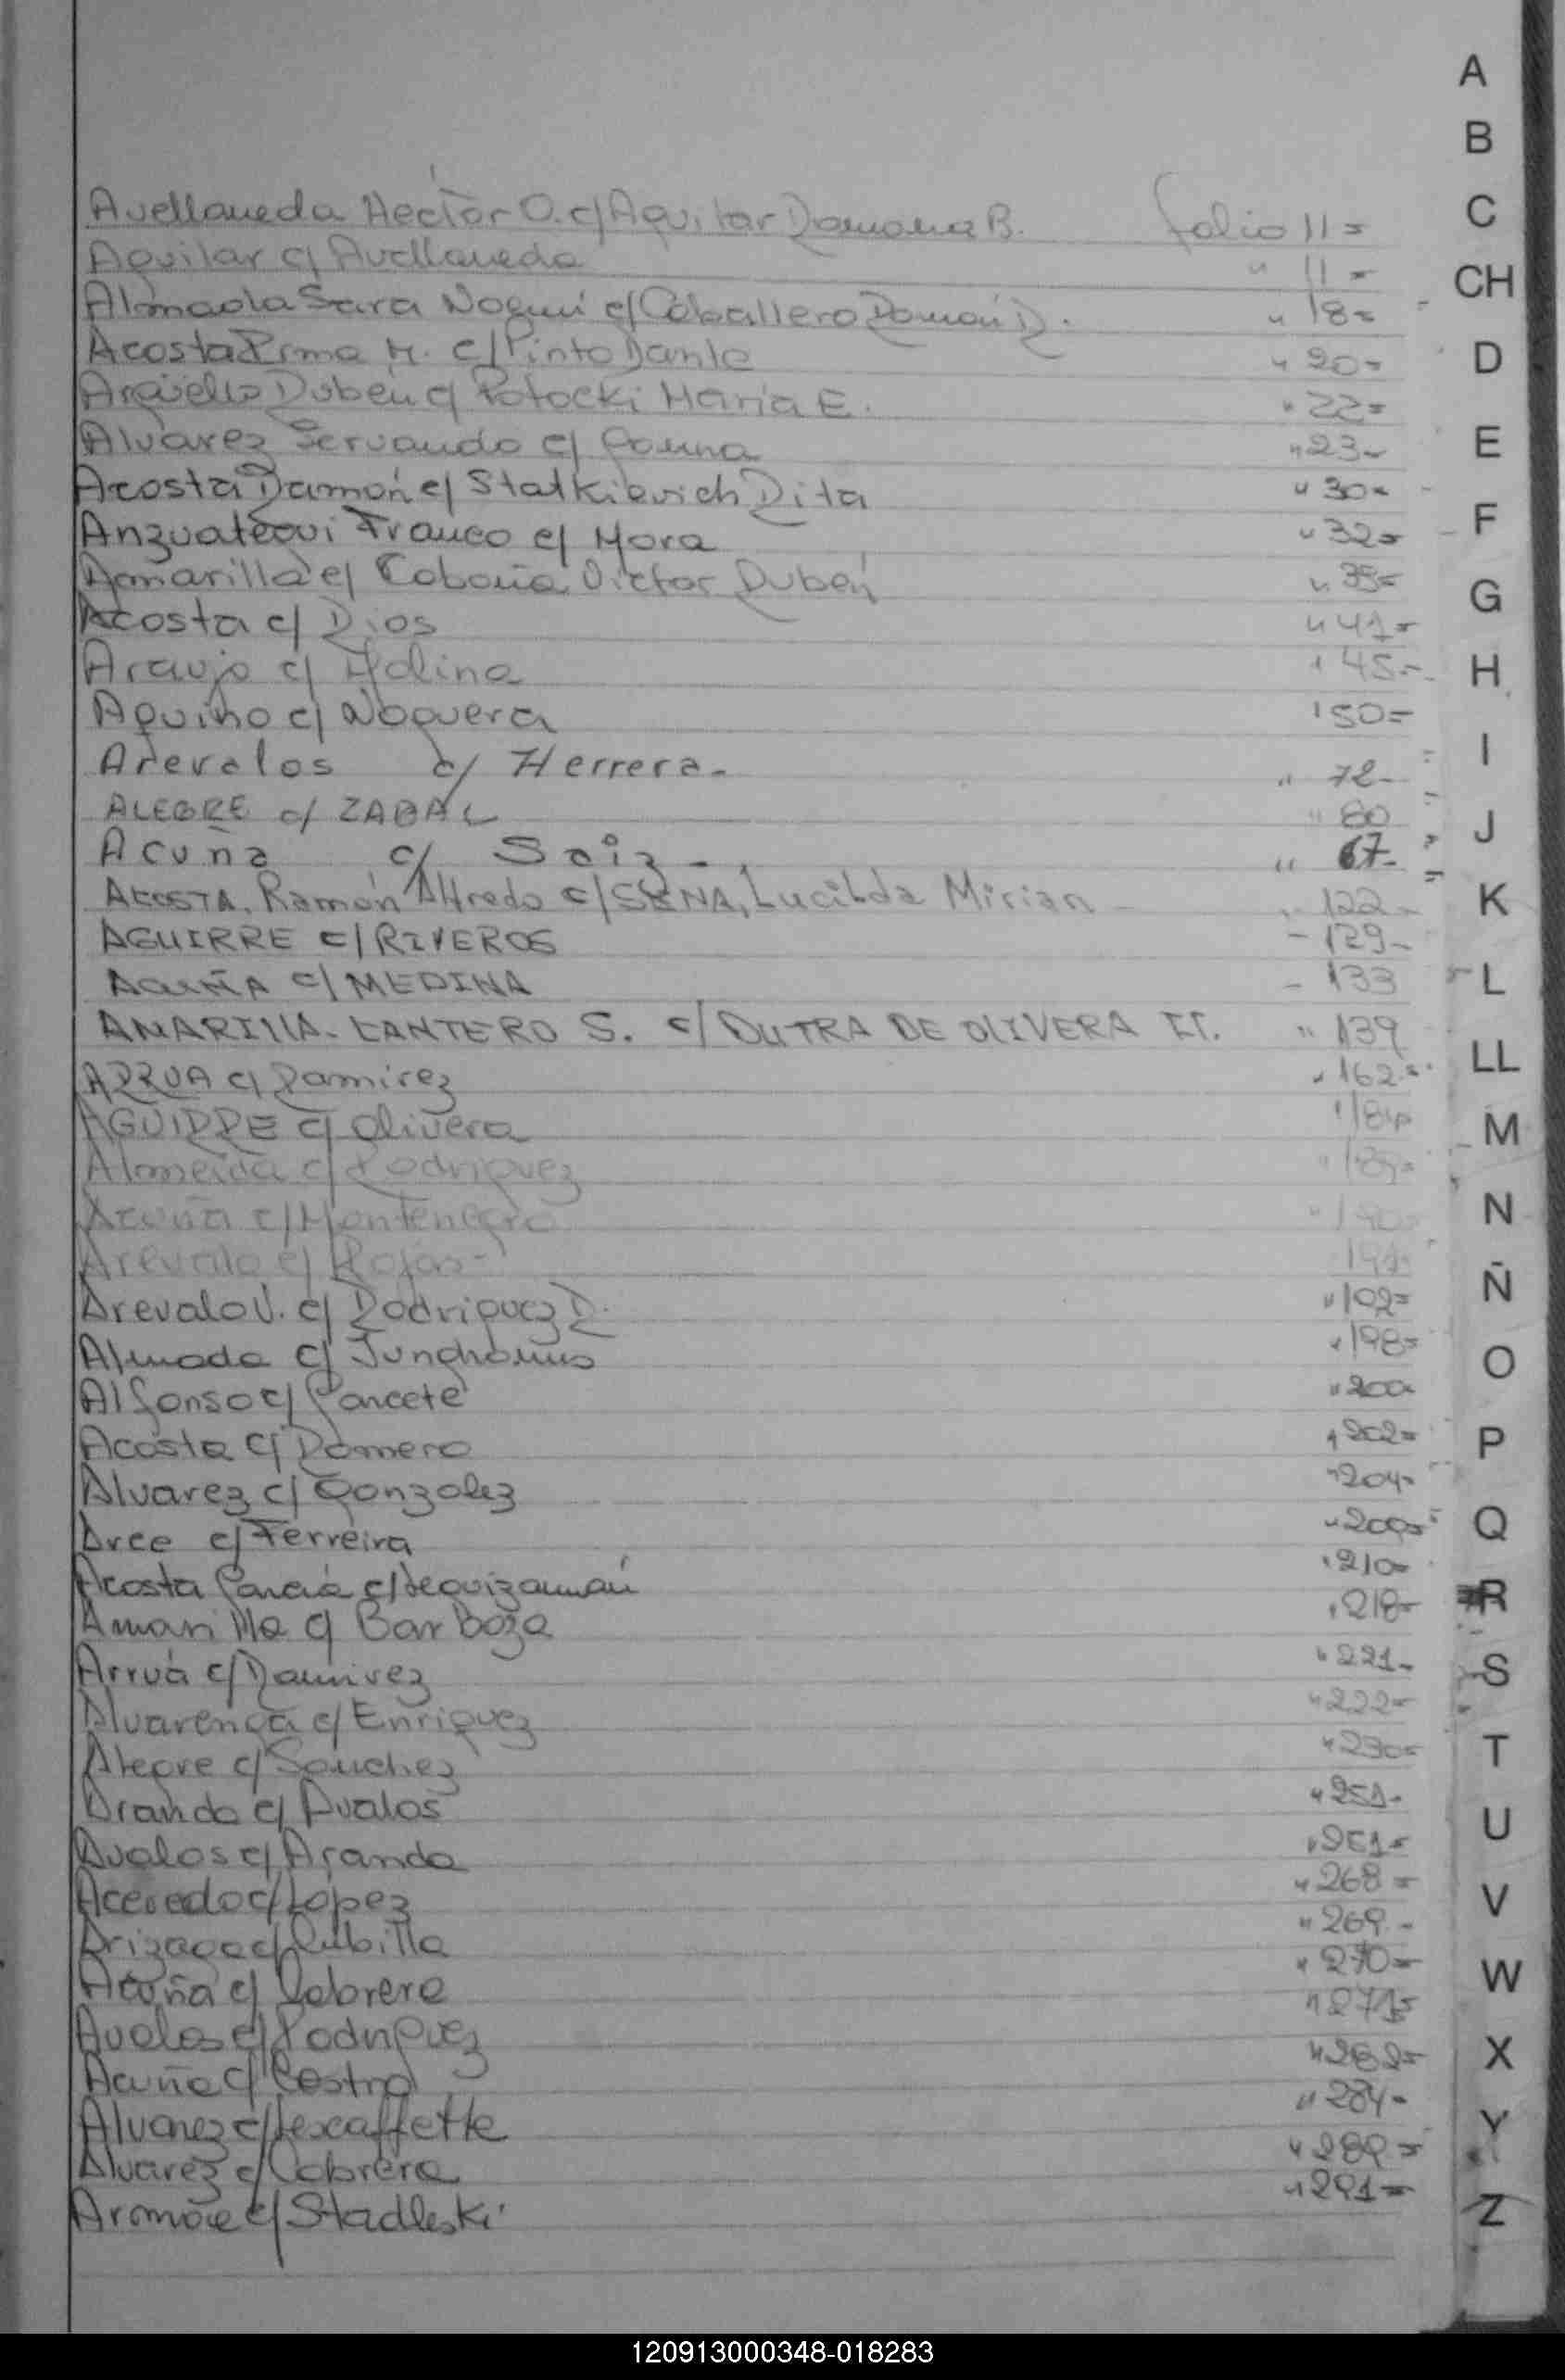 Avellaneda Hector O. c/ Aguilar Ramona B. folio 11=
Aguilar c/ Avellaneda " 11=
Almada Sara Noemí c/ Caballero Ramón D. " 18=
Acosta Irma M. c/ Pinto Dante " 20=
Argüello Rubén c/ Potocki Maria E. " 22=
Alvarez Servando c/ Gauna " 23=
Acosta Ramón c/ Statkievich Rita " 30=
Anzuategui Franco c/ Mora " 32=
Amarilla c/ Cabaña Victor Rubén " 35=
Acosta c/ Rios " 41=
Araujo c/ Molina " 45=
Aquino c/ Noguera " 50=
Arevalos c/ Herrera- " 72-
ALEGRE c/ ZABAL " 80
Acuña c/ Saiz- " 67-
ACOSTA, Ramón Alfredo c/ SENA, Lucilda Mirian - " 122-
AGUIRRE c/ RIVEROS - 129-
ACUÑA c/ MEDINA - 133
AMARILLA-CANTERO S. c/ DUTRA DE OLIVERA II. " 139
ARRUA c/ Ramirez " 162=
AGUIRRE c/ Olivera " 184=
Almeida c/ Rodriguez " 189=
Acuña c/ Montenegro " 190=
Arevalo c/ Rojas- 191
Arevalo V. c/ Rodriguez R. " 192=
Almada c/ Junghanns " 198=
Alfonso c/ Garcete " 200=
Acosta c/ Romero " 202=
Alvarez c/ Gonzalez " 204-
Arce c/ Ferreira " 209=
Acosta García c/ Leguizamón " 210=
Amarilla c/ Barboza " 218-
Arrua c/ Ramirez " 221-
Alvarenga c/ Enriquez " 222=
Alegre c/ Sanchez " 230=
Aranda c/ Avalos " 251-
Avalos c/ Aranda " 251=
Acevedo c/ López " 268=
Arizaga c/ Cubilla " 269-
Acuña c/ Cabrera " 270=
Avalos c/ Rodriguez " 271=
Acuña c/ Castro " 282=
Alvarez c/ Lescaffette " 284-
Alvarez c/ Cabrera " 289=
c/ Stadleski " 291=
A
B
C
CH
D
E
F
G
H
I
J
K
L
LL
M
N
Ñ
O
P
Q
R
S
T
U
V
W
X
Y
Z
120913000348-018283